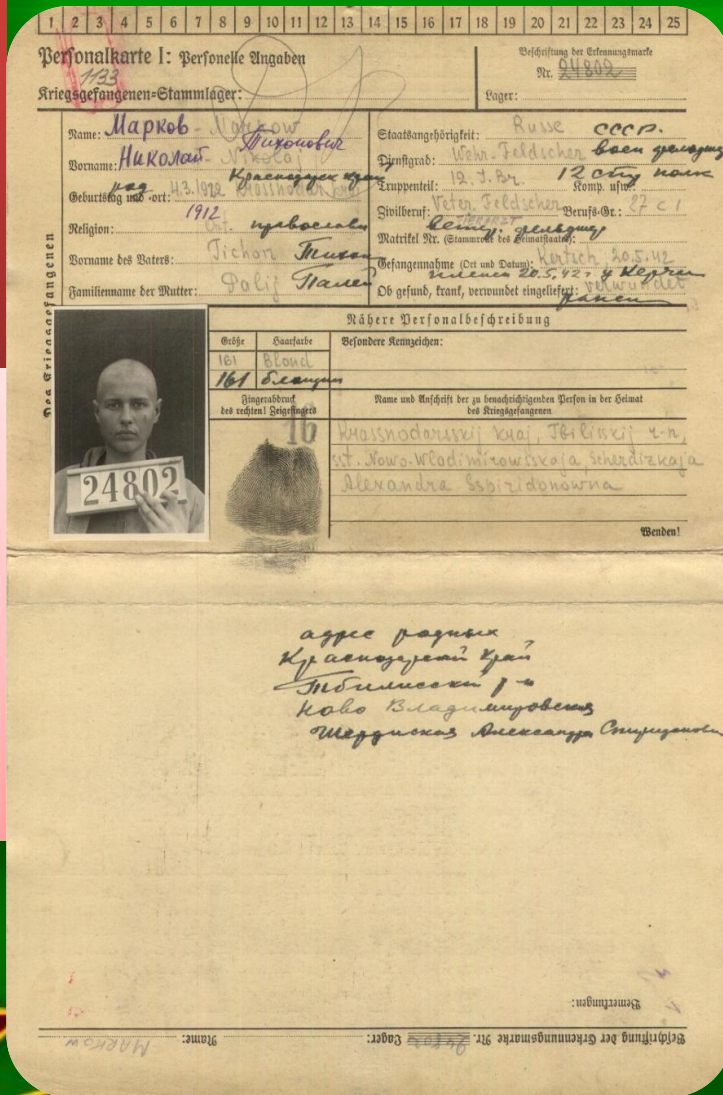 1 2 3 4 5 6 7 8 9 10 11 12 13 14 15 16 17 18 19 20 21 22 23 24 25
Personalkarte I: Personelle Angaben
1133
Kriegsgefangenen-Stammlager:
Beschriftung der Erkennungsmarke
Nr. 24802
Lager:
Des Kriegsgefangenen
Name: Марков - Markow
Тихонович
Vorname: Николай - Nikolaj
Краснодарск край
Geburtstag und -ort: 4.3.1922 Krasnodar
1912
Religion: Ort. православн
Vorname des Vaters: Tichon Тихон
Familienname der Mutter: Palij Палей
Staatsangehörigkeit: Russe СССР.
Dienstgrad: Wehr-Feldscher воен фельдшер
Truppenteil: 12. J. Br. 12 полк Komp. usw.:
Zivilberuf: Veter. Feldscher Berufs-Gr.: 27 c 1
TIERARZT
ветер. фельдшер
Matrikel Nr. (Stammrolle des Heimatstaates):
Gefangennahme (Ort und Datum): Kertsch, 20.5.42
пленен 20.5.42 г. у Керчи
Ob gesund, krank, verwundet eingeliefert: verwundet
ранен
Nähere Personalbeschreibung
Größe Haarfarbe Besondere Kennzeichen:
161 Blond
161 блондин
Fingerabdruck
des rechten! Zeigefingers
16
Name und Anschrift der zu benachrichtigenden Person in der Heimat
des Kriegsgefangenen
Krassnodarsskij Kraj, Tbilisskij r-n,
st. Nowo-Wladimirowsskaja, Scherdizkaja
Alexandra Sspiridonowna
24802
Wenden!
адрес родных
Краснодарский край
Тбилисский р-н
Ново Владимировская
Шердиская Александра Спиридоновн
Bemerkungen:
Beschriftung der Erkennungsmarke Nr. 24802 Lager: Name: MARKOW